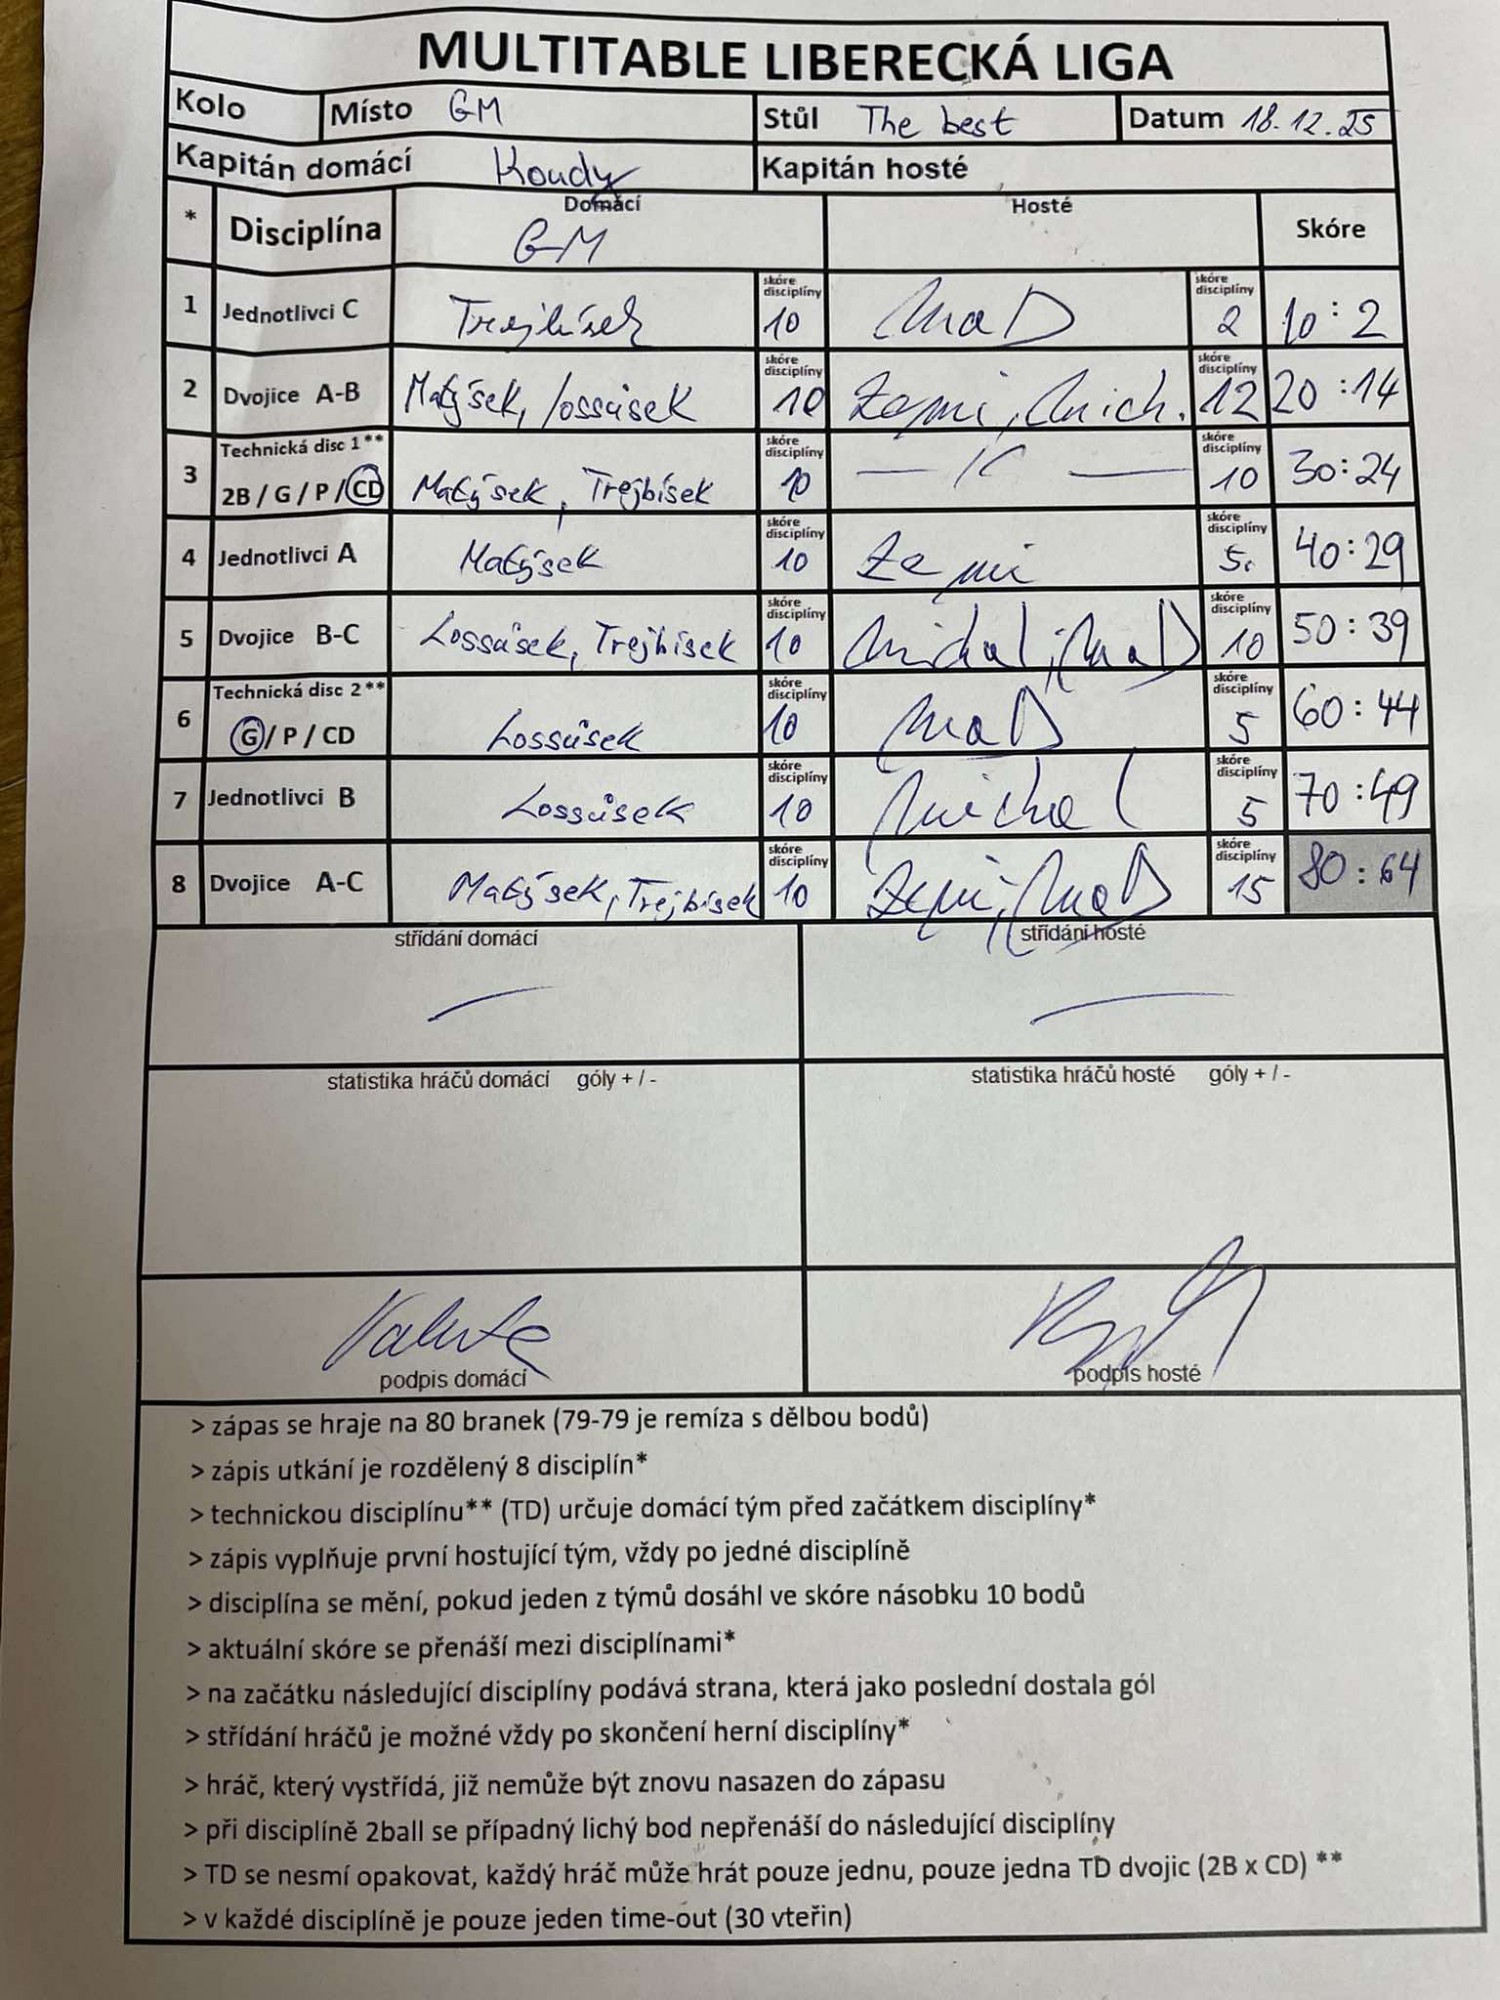 MULTITABLE LIBERECKÁ LIGA
Kolo Místo GM Stůl The best Datum 18.12.25
Kapitán domácí Koudy Kapitán hosté
* Disciplína Domácí GM Hosté Skóre
1 Jednotlivci C Trejbísek skóre disciplíny 10 MaD skóre disciplíny 2 10:2
2 Dvojice A-B Matýsek, Lossúsek skóre disciplíny 10 Zemi, Mich. skóre disciplíny 12 20:14
3 Technická disc 1** 2B / G / P / CD Matýsek, Trejbísek skóre disciplíny 10 — 1C — skóre disciplíny 10 30:24
4 Jednotlivci A Matýsek skóre disciplíny 10 Zemi skóre disciplíny 5. 40:29
5 Dvojice B-C Lossúsek, Trejbísek skóre disciplíny 10 Michal, MaD skóre disciplíny 10 50:39
6 Technická disc 2** G / P / CD Lossúsek skóre disciplíny 10 MaD skóre disciplíny 5 60:44
7 Jednotlivci B Lossúsek skóre disciplíny 10 Michal skóre disciplíny 5 70:49
8 Dvojice A-C Matýsek, Trejbísek skóre disciplíny 10 Zemi, MaD skóre disciplíny 15 80:64
střídání domácí střídání hosté
— —
statistika hráčů domácí góly + / - statistika hráčů hosté góly + / -
podpis domácí podpis hosté
> zápas se hraje na 80 branek (79-79 je remíza s dělbou bodů)
> zápis utkání je rozdělený 8 disciplín*
> technickou disciplínu** (TD) určuje domácí tým před začátkem disciplíny*
> zápis vyplňuje první hostující tým, vždy po jedné disciplíně
> disciplína se mění, pokud jeden z týmů dosáhl ve skóre násobku 10 bodů
> aktuální skóre se přenáší mezi disciplínami*
> na začátku následující disciplíny podává strana, která jako poslední dostala gól
> střídání hráčů je možné vždy po skončení herní disciplíny*
> hráč, který vystřídá, již nemůže být znovu nasazen do zápasu
> při disciplíně 2ball se případný lichý bod nepřenáší do následující disciplíny
> TD se nesmí opakovat, každý hráč může hrát pouze jednu, pouze jedna TD dvojic (2B x CD) **
> v každé disciplíně je pouze jeden time-out (30 vteřin)